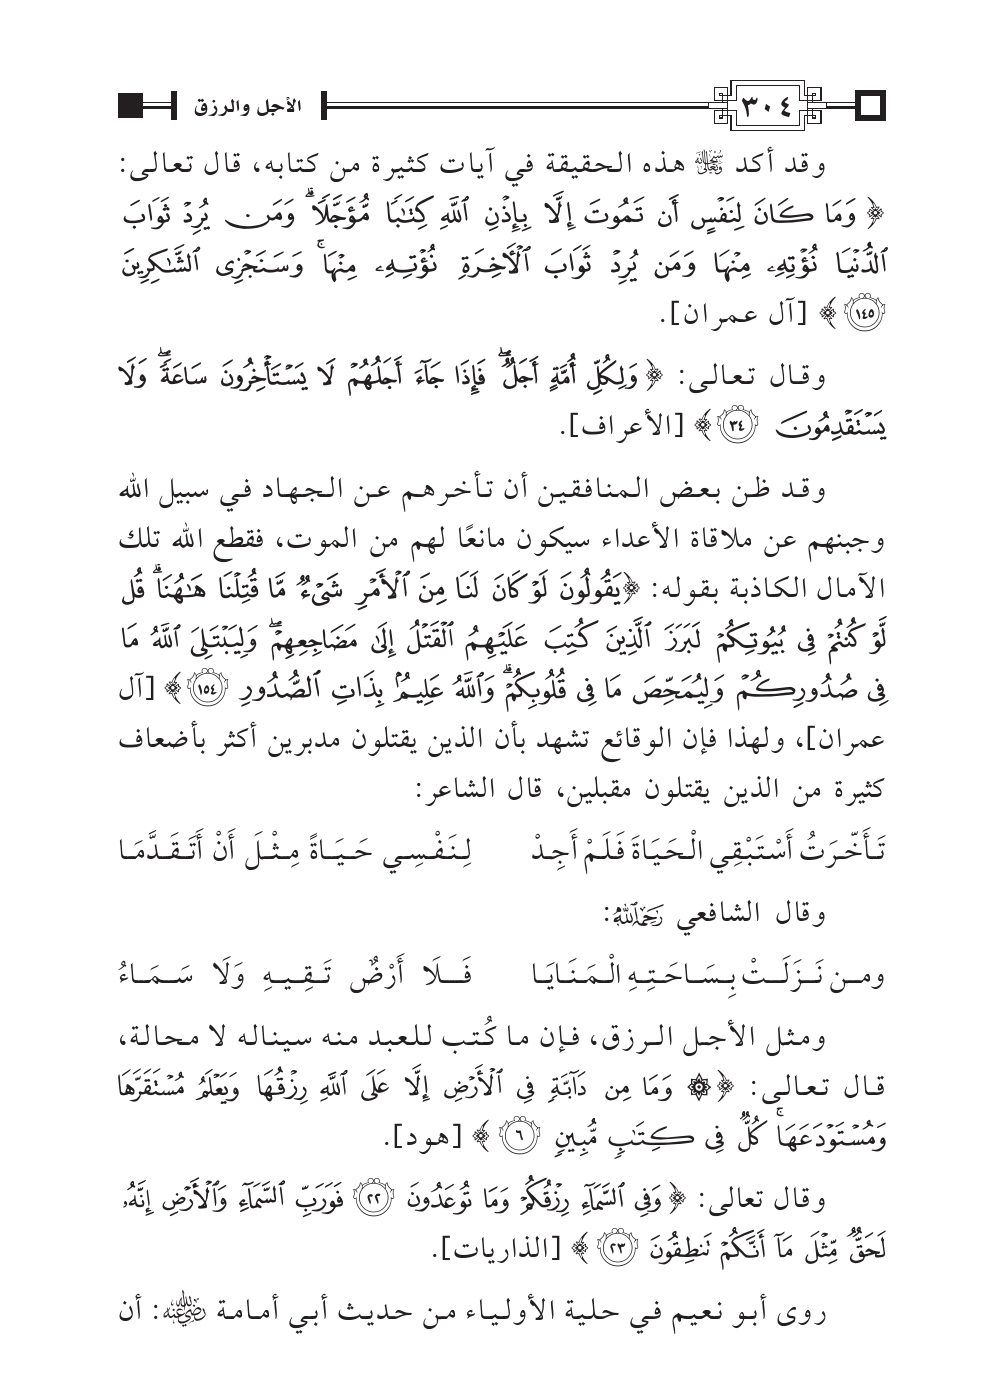 ٣٠٤ الأجل والرزق
وقد أكد ﷾ هذه الحقيقة في آيات كثيرة من كتابه، قال تعالى:
﴿ وَمَا كَانَ لِنَفْسٍ أَن تَمُوتَ إِلَّا بِإِذْنِ ٱللَّهِ كِتَٰبًا مُّؤَجَّلًا ۗ وَمَن يُرِدْ ثَوَابَ
ٱلدُّنْيَا نُؤْتِهِۦ مِنْهَا وَمَن يُرِدْ ثَوَابَ ٱلْأَخِرَةِ نُؤْتِهِۦ مِنْهَا ۚ وَسَنَجْزِى ٱلشَّٰكِرِينَ
١٤٥ ﴾ [آل عمران].
وقال تعالى: ﴿ وَلِكُلِّ أُمَّةٍ أَجَلٌ ۖ فَإِذَا جَآءَ أَجَلُهُمْ لَا يَسْتَأْخِرُونَ سَاعَةً ۖ وَلَا
يَسْتَقْدِمُونَ ٣٤ ﴾ [الأعراف].
وقد ظن بعض المنافقين أن تأخرهم عن الجهاد في سبيل الله
وجبنهم عن ملاقاة الأعداء سيكون مانعًا لهم من الموت، فقطع الله تلك
الآمال الكاذبة بقوله: ﴿يَقُولُونَ لَوْ كَانَ لَنَا مِنَ ٱلْأَمْرِ شَىْءٌ مَّا قُتِلْنَا هَٰهُنَا ۗ قُل
لَّوْ كُنتُمْ فِى بُيُوتِكُمْ لَبَرَزَ ٱلَّذِينَ كُتِبَ عَلَيْهِمُ ٱلْقَتْلُ إِلَىٰ مَضَاجِعِهِمْ ۖ وَلِيَبْتَلِىَ ٱللَّهُ مَا
فِى صُدُورِكُمْ وَلِيُمَحِّصَ مَا فِى قُلُوبِكُمْ ۗ وَٱللَّهُ عَلِيمٌۢ بِذَاتِ ٱلصُّدُورِ ١٥٤ ﴾ [آل
عمران]، ولهذا فإن الوقائع تشهد بأن الذين يقتلون مدبرين أكثر بأضعاف
كثيرة من الذين يقتلون مقبلين، قال الشاعر:
تَأَخَّرَتُ أَسْتَبْقِي الْحَيَاةَ فَلَمْ أَجِدْ لِنَفْسِي حَيَاةً مِثْلَ أَنْ أَتَقَدَّمَا
وقال الشافعي رَحِمَهُ ٱللَّهُ:
ومن نَزَلَتْ بِسَاحَتِهِ الْمَنَايَا فَلَا أَرْضٌ تَقِيهِ وَلَا سَمَاءُ
ومثل الأجل الرزق، فإن ما كُتب للعبد منه سيناله لا محالة،
قال تعالى: ﴿ ۞ وَمَا مِن دَآبَّةٍ فِى ٱلْأَرْضِ إِلَّا عَلَى ٱللَّهِ رِزْقُهَا وَيَعْلَمُ مُسْتَقَرَّهَا
وَمُسْتَوْدَعَهَا ۚ كُلٌّ فِى كِتَٰبٍ مُّبِينٍ ٦ ﴾ [هود].
وقال تعالى: ﴿ وَفِى ٱلسَّمَآءِ رِزْقُكُمْ وَمَا تُوعَدُونَ ٢٢ فَوَرَبِّ ٱلسَّمَآءِ وَٱلْأَرْضِ إِنَّهُۥ
لَحَقٌّ مِّثْلَ مَآ أَنَّكُمْ تَنطِقُونَ ٢٣ ﴾ [الذاريات].
روى أبو نعيم في حلية الأولياء من حديث أبي أمامة رَضِيَ اللَّهُ عَنْهُ: أن